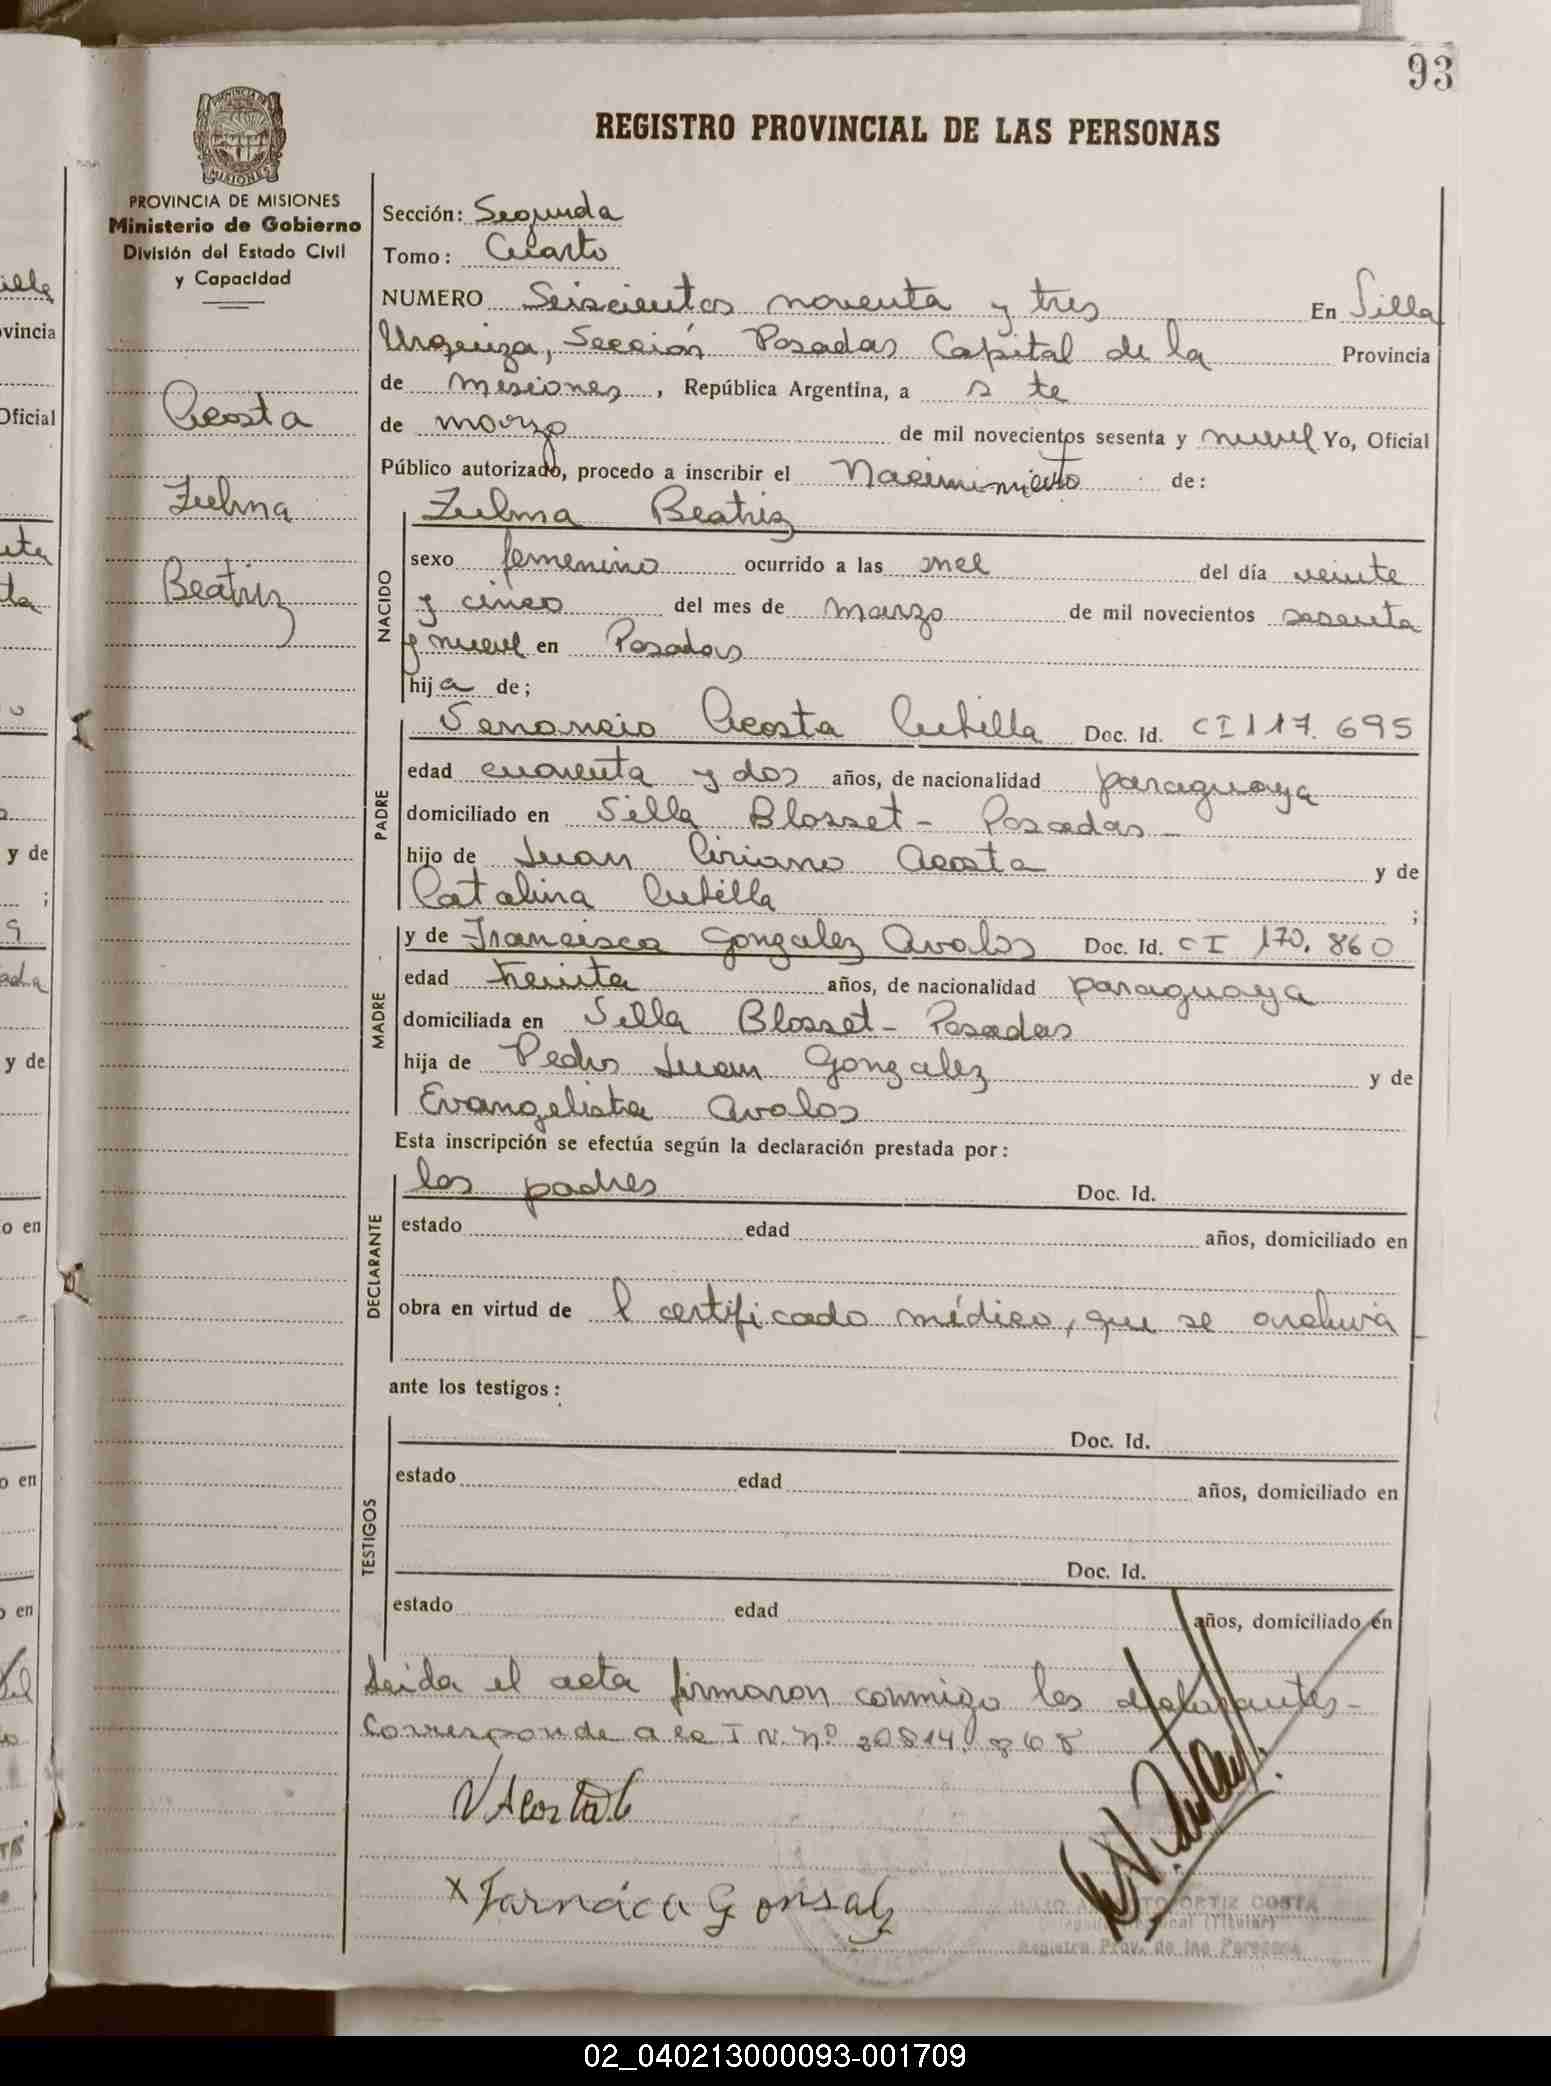 93
PROVINCIA DE MISIONES
PROVINCIA DE MISIONES
Ministerio de Gobierno
División del Estado Civil
y Capacidad
Acosta
Zulma
Beatriz
REGISTRO PROVINCIAL DE LAS PERSONAS
Sección: Segunda
Tomo: Cuarto
NUMERO Seiscientos noventa y tres En Villa
Urquiza, Sección Posadas Capital de la Provincia
de misiones, República Argentina, a
de marzo de mil novecientos sesenta y nueve Yo, Oficial
Público autorizado, procedo a inscribir el Nacimiento de:
NACIDO
Zulma Beatriz
sexo femenino ocurrido a las del día veinte
y cinco del mes de marzo de mil novecientos sesenta
y nueve en Posadas
hija de;
PADRE
Venancio Acosta Cubilla Doc. Id. CI 117.695
edad cuarenta y dos años, de nacionalidad paraguaya
domiciliado en Villa Blosset - Posadas -
hijo de Juan Ciriano Acosta y de
Catalina Cubilla ;
MADRE
y de Francisca Gonzalez Avalos Doc. Id. CI 170.860
edad treinta años, de nacionalidad paraguaya
domiciliada en Villa Blosset - Posadas
hija de Pedro Juan Gonzalez y de
Evangelista Avalos
Esta inscripción se efectúa según la declaración prestada por:
DECLARANTE
los padres Doc. Id.
estado edad años, domiciliado en
obra en virtud de l certificado médico, que se archiva
ante los testigos:
TESTIGOS
Doc. Id.
estado edad años, domiciliado en
Doc. Id.
estado edad años, domiciliado en
Leida el acta firmaron conmigo los declarantes -
Corresponde a la I N. Nº
V Acosta C
x Farnáca Gonsalz
ORTIZ COSTA
(Titular)
Registro Prov. de las Personas
02_040213000093-001709